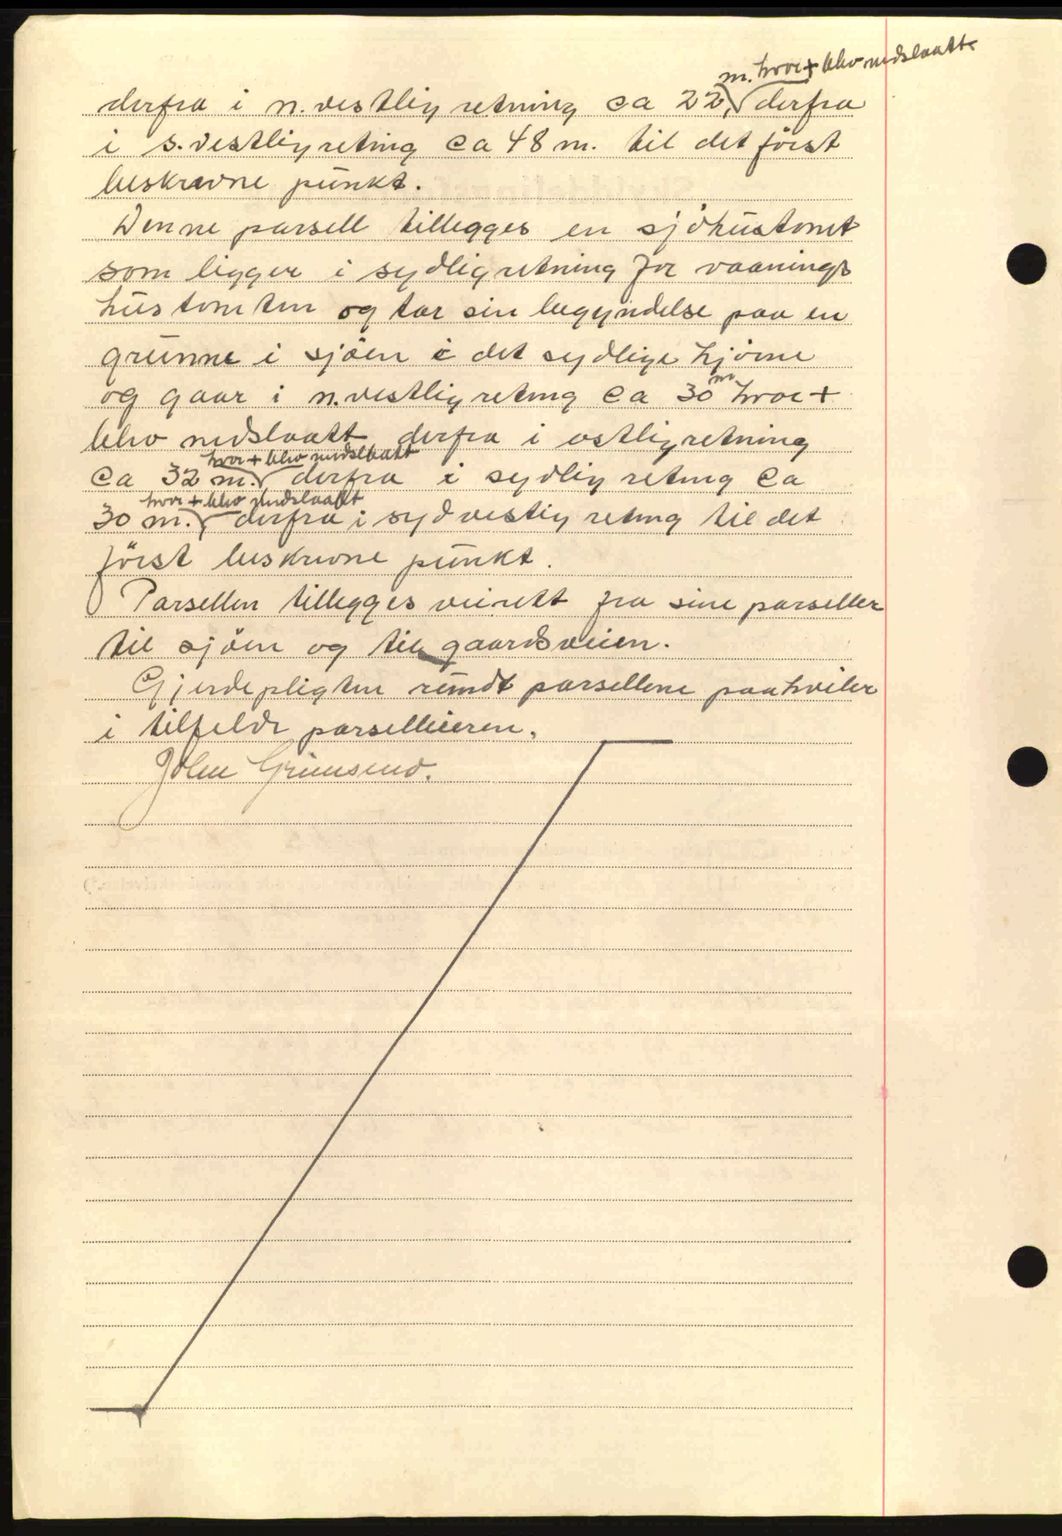 m. hvor + blev nedslaatt
derfra i n.vestlig retning ca 22, derfra
i s.vestlig reting ca 48 m. til det først
beskrevne punkt.
Denne parsell tillegges en sjöhustomt
som ligger i sydlig retning for vaanings
hustomten og tar sin begyndelse paa en
grunne i sjöen i det sydlige hjörne
og gaar i n.vestlig reting ca 30 m hvor +
blev nedslaatt derfra i ostlig retning
hvor + blev nedslaatt
ca 32 m. derfra i sydlig reting ca
hvor + blev nedslaatt
30 m. derfra i sydvestlig reting til det
först beskrevne punkt.
Parsellen tillegges veirett fra sine parseller
til sjöen og til gaardsveien.
Gjerdepligten rundt parsellene paahviler
i tilfelde parselleieren.
John